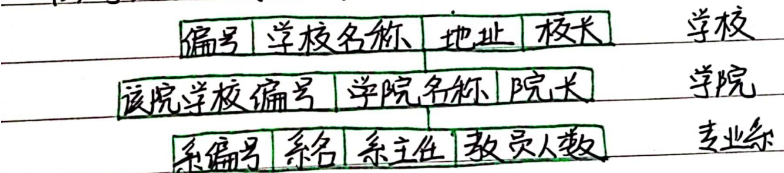 编号 学校名称 地址 校长 学校
该院学校编号 学院名称 院长 学院
系编号 系名 系主任 教员人数 专业系